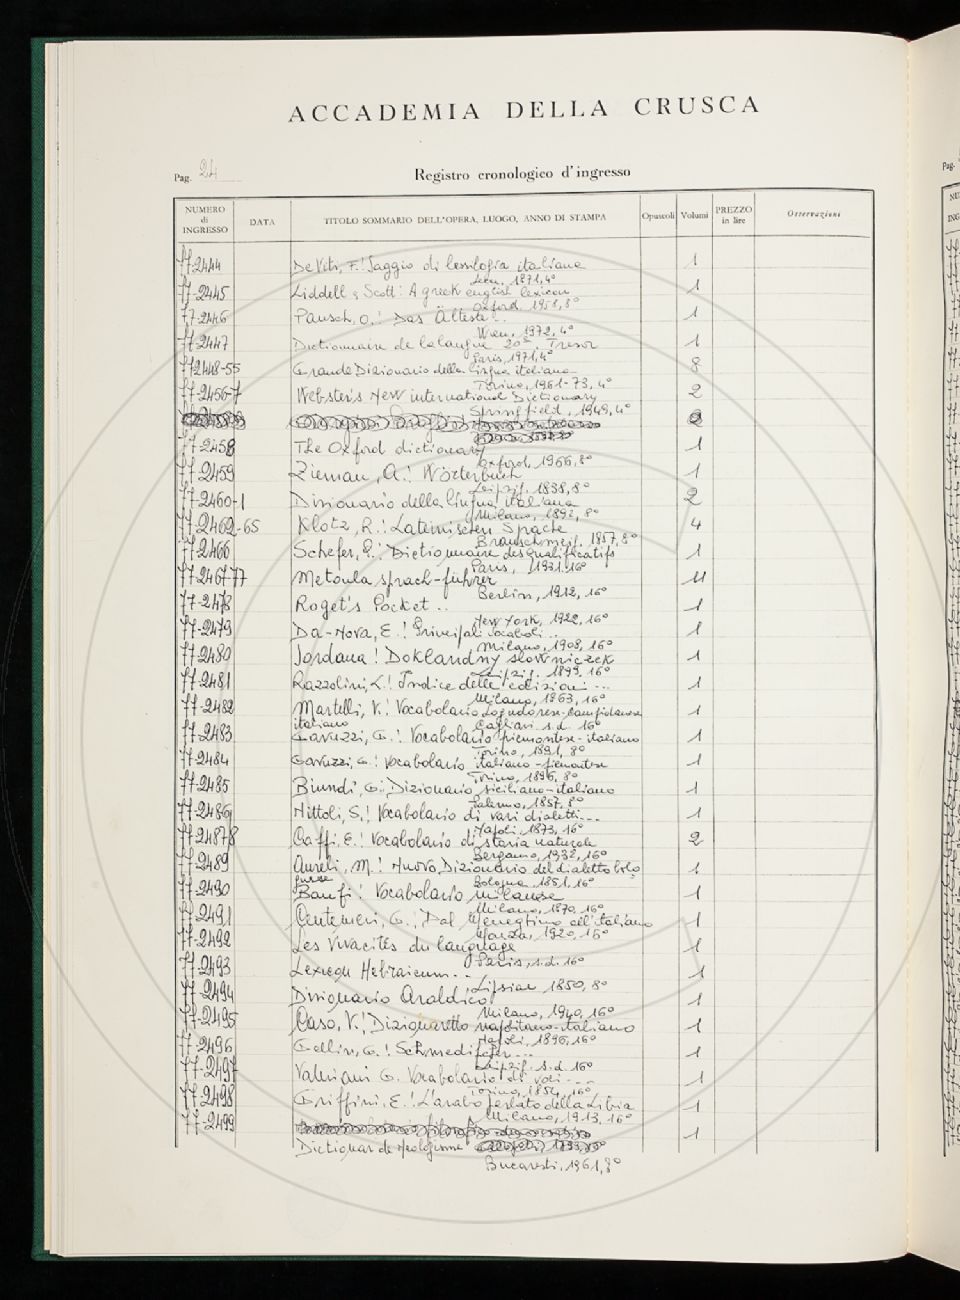 ACCADEMIA DELLA CRUSCA
Pag. 24
Registro cronologico d'ingresso
NUMERO di INGRESSO DATA TITOLO SOMMARIO DELL'OPERA, LUOGO, ANNO DI STAMPA Opuscoli Volumi PREZZO in lire Osservazioni
77-2444 De Vit, F.: Saggio di lessilogia italiana 1
1871, 4°
77-2445 Liddell e Scott: A greek english lexicon 1
Oxford 1951, 8°
77-2446 Pausch, O.: Das Älteste... 1
Wien, 1972, 4°
77-2447 Dictionnaire de la langue 20e. Tresor 1
Paris, 1971, 4°
77-2448-55 Grande Dizionario della lingua italiana 8
Torino, 1961-73, 4°
77-2456-7 Webster's New international Dictionary 2
Springfield, 1949, 4°
77-2458 The Oxford dictionary 1
Oxford, 1966, 8°
77-2459 Zieman, A.: Wörterbuch 1
Leipzig. 1838, 8°
77-2460-1 Dizionario della lingua italiana 2
Milano, 1892, 8°
77-2462-65 Klotz, R.: Lateinischen Sprache 4
Braunschweig. 1857, 8°
77-2466 Schefer, P.: Dictionnaire des qualificatifs 1
Paris, 1931. 16°
77-2467-77 Metoula sprach-führer 11
Berlin, 1912, 16°
77-2478 Roget's Pocket .. 1
New York, 1922, 16°
77-2479 Da-Nova, E.: Principali vocaboli... 1
Milano, 1908, 16°
77-2480 Jordana: Dokladny slowniczek 1
Leipzig. 1899, 16°
77-2481 Razzolini, L.: Indice delle edizioni ... 1
Milano, 1863, 16°
77-2482 Martelli, V.: Vocabolario Logudorese-Campidanese 1
italiano Cagliari s.d. 16°
77-2483 Gavuzzi, G.: Vocabolario piemontese-italiano 1
Torino, 1891, 8°
77-2484 Gavuzzi, G.: Vocabolario italiano-piemontese 1
Torino, 1896, 8°
77-2485 Biundi, G.: Dizionario siciliano-italiano 1
Palermo, 1857, 8°
77-2486 Mittoli, S.: Vocabolario di vari dialetti... 1
Napoli, 1873, 16°
77-2487/8 Caffi, E.: Vocabolario di storia naturale 2
Bergamo, 1932, 16°
77-2489 Aureli, M.: Nuovo Dizionario del dialetto bolo 1
gnese Bologna 1851, 16°
77-2490 Banfi: Vocabolario milanese 1
Milano, 1870, 16°
77-2491 Centemeri, G.: Dal Meneghino all'italiano 1
Monza, 1920, 16°
77-2492 Les Vivacités du language 1
Paris, s.d. 16°
77-2493 Lexicon Hebraicum... 1
Lipsiae 1850, 8°
77-2494 Dizionario Araldico 1
Milano, 1940, 16°
77-2495 Caso, V.: Dizionaretto napoletano-italiano 1
Napoli, 1896, 16°
77-2496 Gellin, G.: 1
Leipzig. s.d. 16°
77-2497 Valeriani G. Vocabolario di voci... 1
Torino, 1854, 16°
77-2498 Griffini, E.: L'arabo parlato della Libia 1
Milano, 1913, 16°
77-2499 1
Dictionar de Neologisme
Bucaresti, 1961, 8°